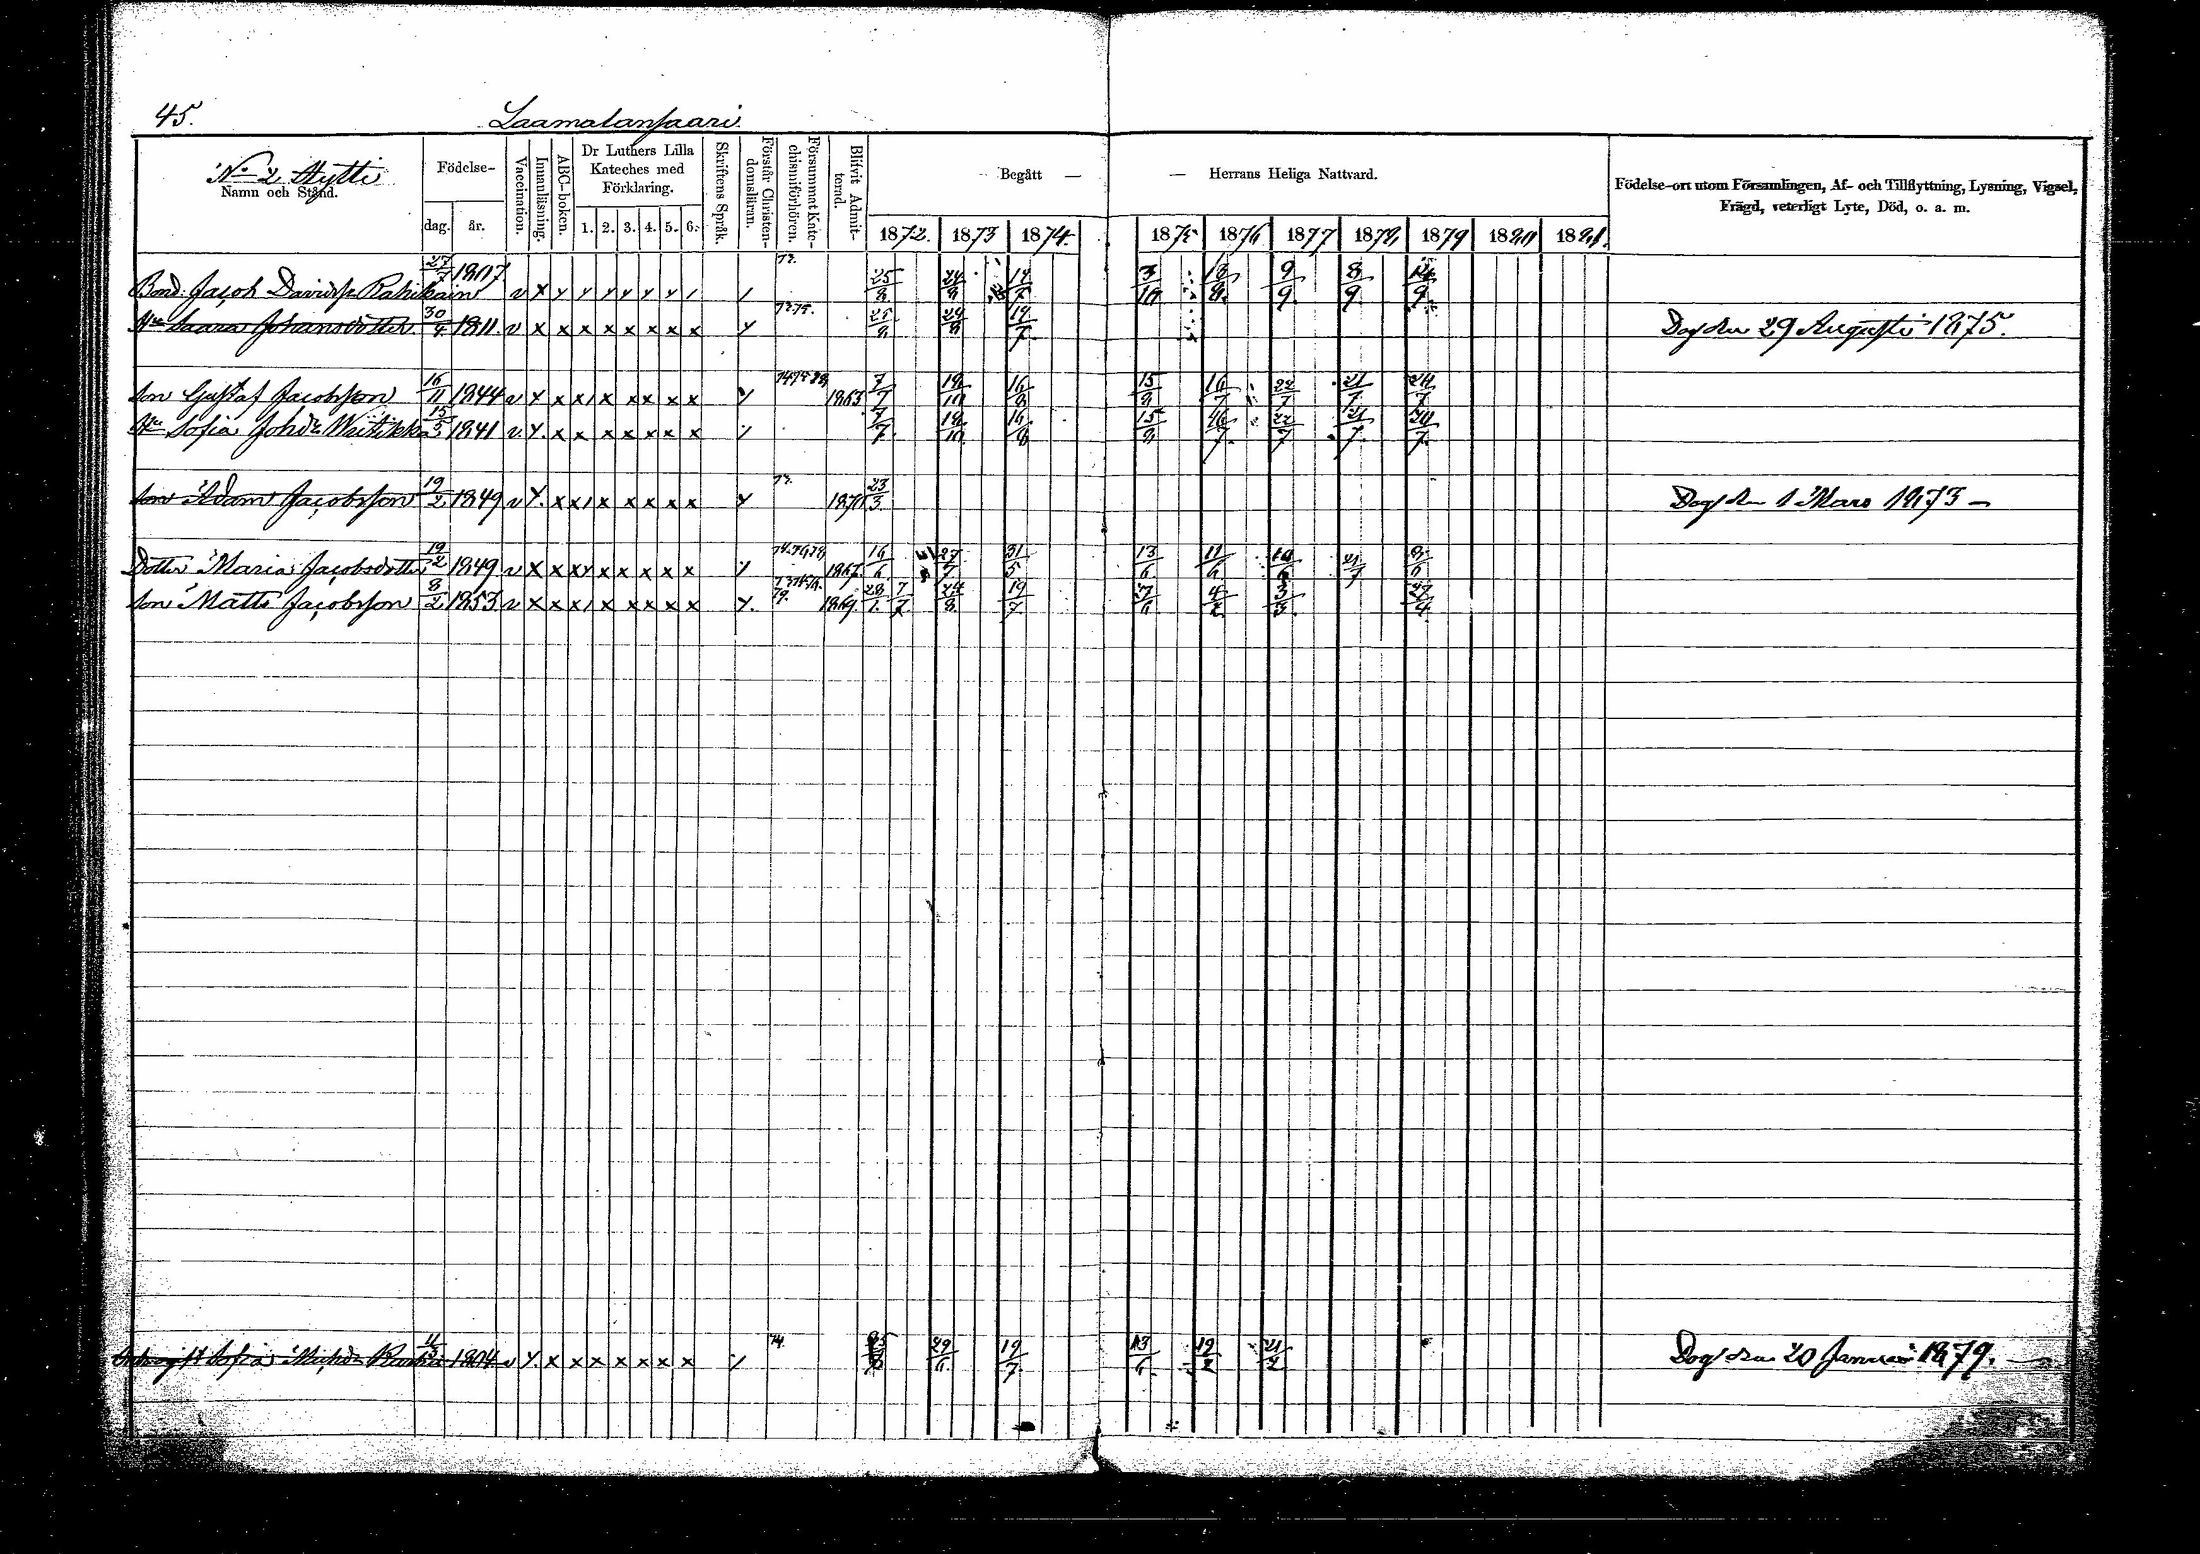 45. Laamalansaari.
No 2 Hytti
Namn och Stånd.
Födelse-
dag. år.
Vaccination.
Innanläsning.
ABC-boken.
Dr Luthers Lilla
Kateches med
Förklaring.
1. 2. 3. 4. 5. 6.
Skriftens Språk.
Förstår Christen-
domsläran.
Försummat Kate-
chismiförhören.
Blifvit Admit-
terad.
Begått — — Herrans Heliga Nattvard.
1872. 1873 1874. 1875 1876 1877 1878 1879 1880 1881.
Födelse-ort utom Församlingen, Af- och Tillflyttning, Lysning, Vigsel,
Frägd, veterligt Lyte, Död, o. a. m.
Bond. Jacob Davidss. Rahikain 27/7 1807 v x y y y y y y 73. 25/8 24/8 19/7 3/10 13/8 9/9 8/9 14/9
Hu Saara Johansdotter 30/4 1811. v x x x x x x x x y 73 75. 25/8 24/8 19/7 Dog den 29 Augusti 1875.
Son Gustaf Jacobsson 16/11 1844 v y x x x x x x x y 1863 7/7 19/10 16/8 15/8 16/7 22/7 21/7 24/7
Hu Sofia Johdr Waitikka 15/5 1841 v y. x x x x x x x 7/7 19/10 16/8 15/8 16/7 22/7 21/7 24/7
Son Adam Jacobsson 19/2 1849 v y. x x x x x x x y 73. 1870 23/3 Dog den 1 Mars 1873 —
Dotter Maria Jacobsdotter 19/2 1849 v x x x y x x x x x y 1867 16/6 27/7 31/5 13/6 11/6 10/6 21/7 8/6
Son Matts Jacobsson 8/2 1853 v x x x x x x x x y. 1869 28/1 7/7 24/8 19/7 27/6 4/2 3/3 27/4
Sofia Michdr 1804 v y. x x x x x x x 74. 25/8 29/6 19/7 13/6 19/2 21/2 Dog den 20 Januari 1879. —